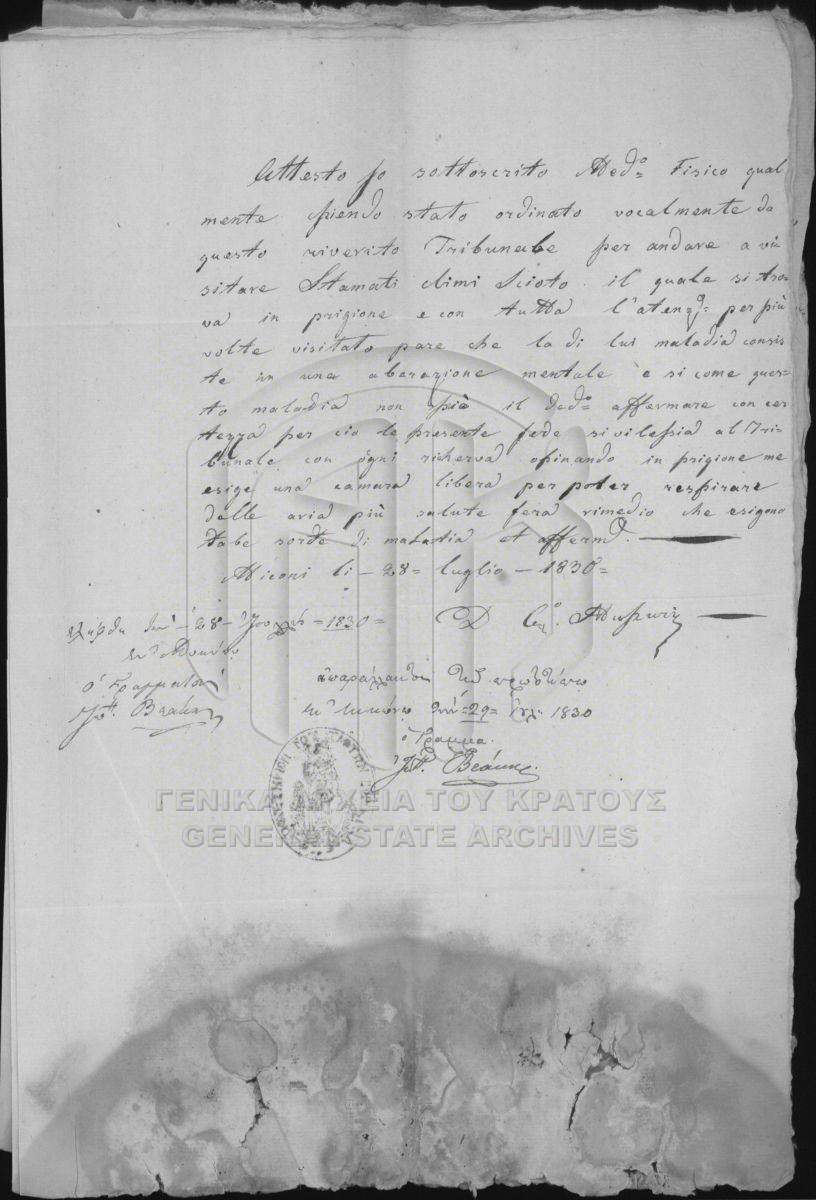 Attesto Io sottoscrito Med:o Fisico qual
mente essendo stato ordinato vocalmente da
questo riverito Tribunale per andare a vi
sitare Stamati climi Scioto il quale si tro=
va in prigione e con tutta l'atenz:e per più
volte visitato pare che la di lui maladia consis
te in una aberazione mentale è si come ques=
to maladia non può il ded:o affermare con cer
tezza per cio la presente fede si vilessia al Tri=
bunale con ogni riserva opinando in prigione me
esige una camara libera per poter respirare
delle aria più salute fera rimedio che esigono
tabe sorte di malatia et afferm:
Miconi li - 28 = luglio - 1830 =
D
ἐλήφθη τὴν - 28 - Ἰουλίου = 1830 =
ἐν Μυκόνῳ
ὁ Γραμματεὺς
Βεάκης
ἀπαράλλακτον τῷ πρωτοτύπῳ
ἐν Μυκόνῳ τὴν = 29 = Ἰουλ: 1830
ὁ Γραμμα.
Βεάκης
ΓΕΝΙΚΑ ΑΡΧΕΙΑ ΤΟΥ ΚΡΑΤΟΥΣ
GENERAL STATE ARCHIVES